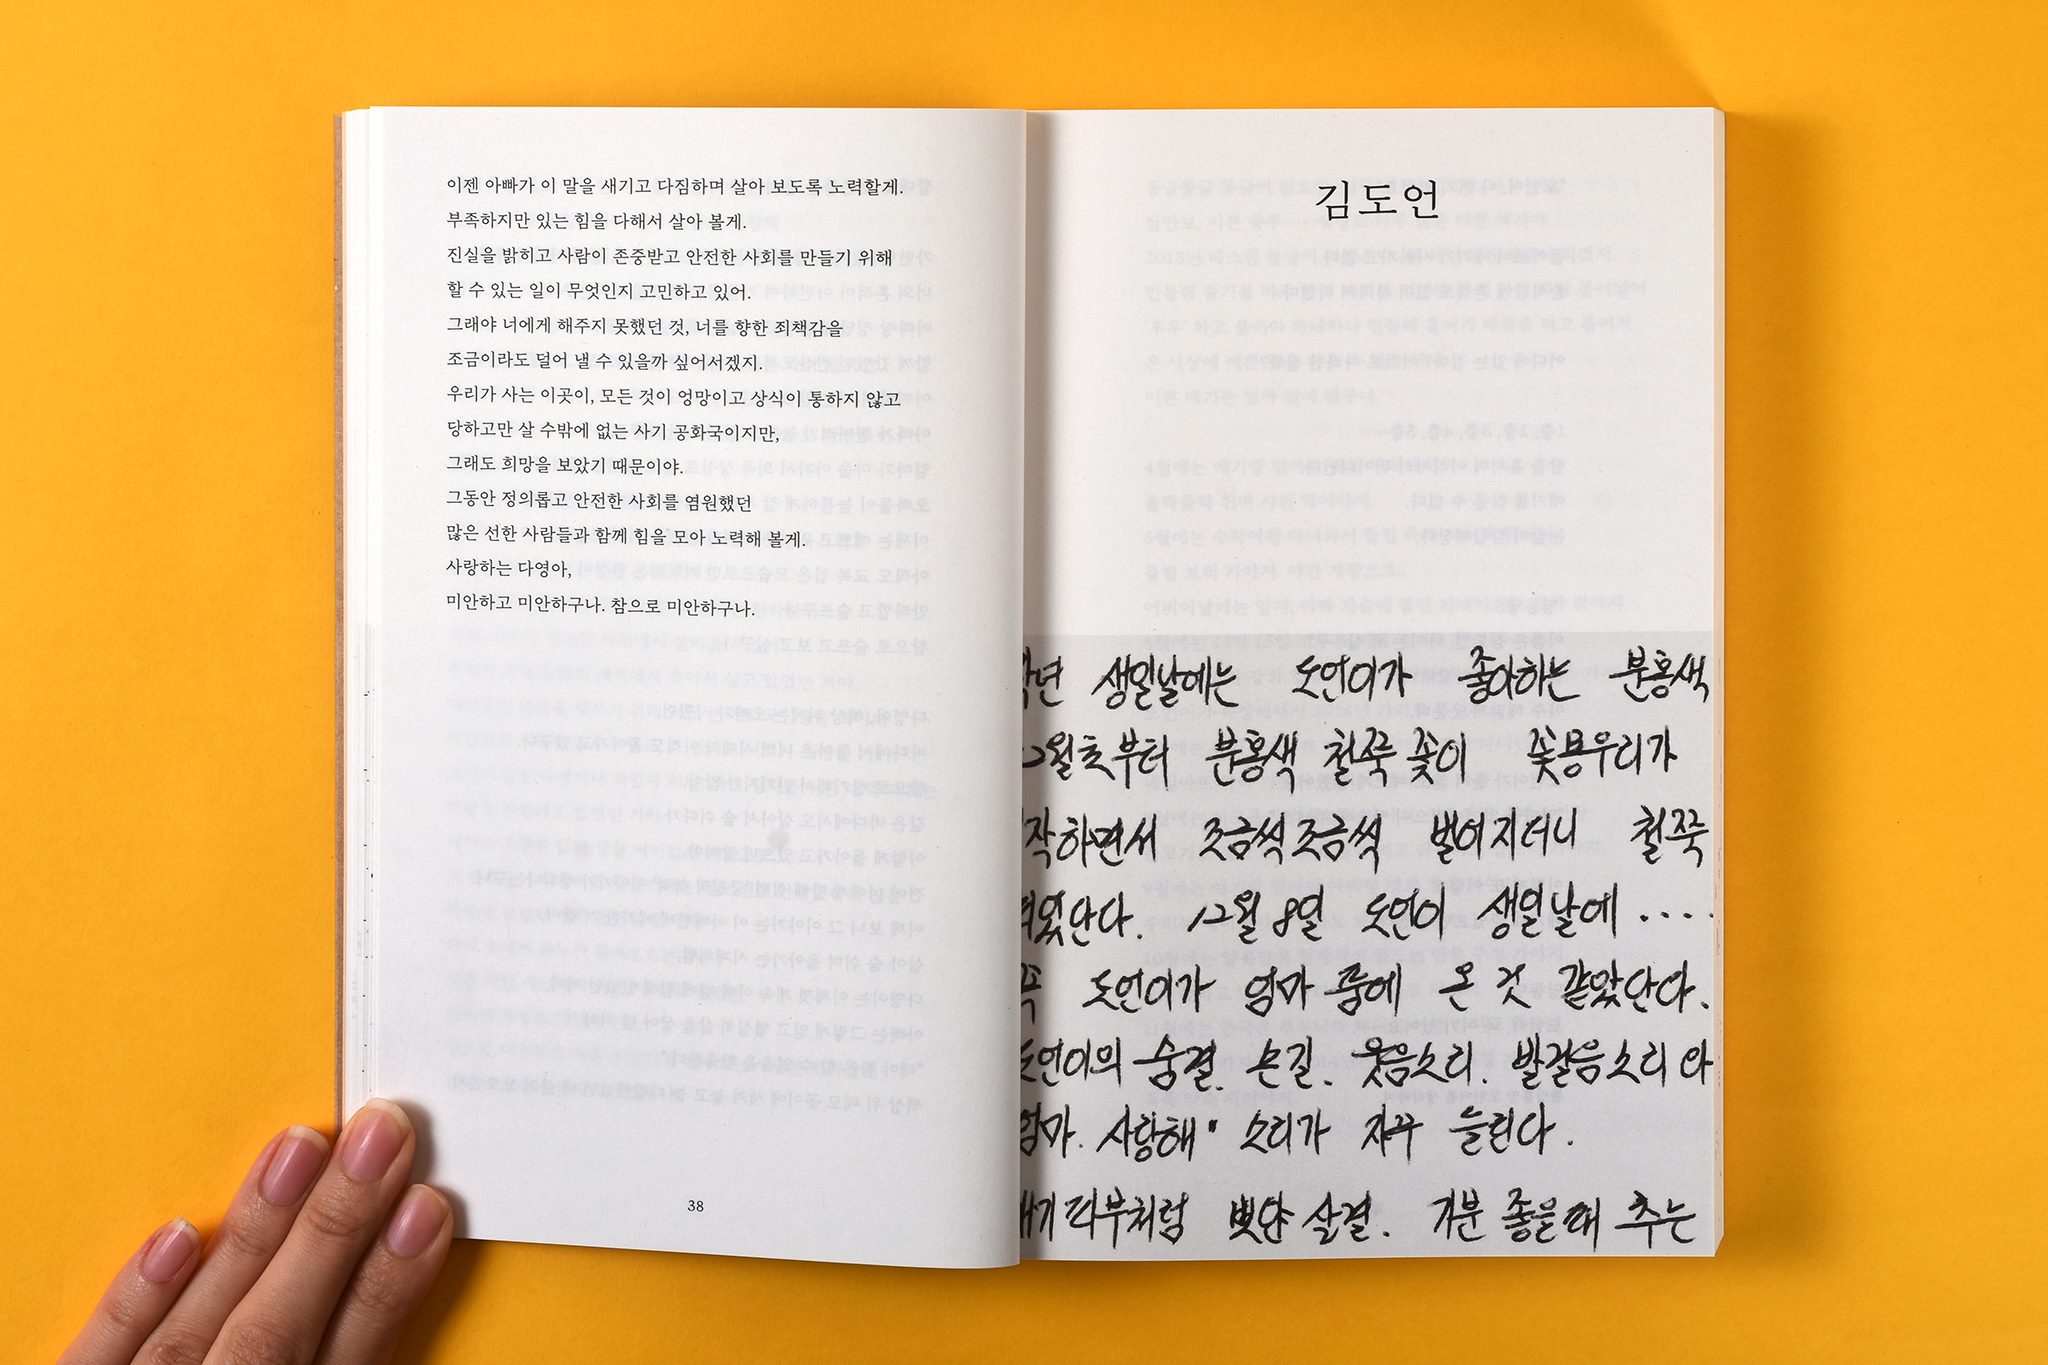 이젠 아빠가 이 말을 새기고 다짐하며 살아 보도록 노력할게.
부족하지만 있는 힘을 다해서 살아 볼게.
진실을 밝히고 사람이 존중받고 안전한 사회를 만들기 위해
할 수 있는 일이 무엇인지 고민하고 있어.
그래야 너에게 해주지 못했던 것, 너를 향한 죄책감을
조금이라도 덜어 낼 수 있을까 싶어서겠지.
우리가 사는 이곳이, 모든 것이 엉망이고 상식이 통하지 않고
당하고만 살 수밖에 없는 사기 공화국이지만,
그래도 희망을 보았기 때문이야.
그동안 정의롭고 안전한 사회를 염원했던
많은 선한 사람들과 함께 힘을 모아 노력해 볼게.
사랑하는 다영아,
미안하고 미안하구나. 참으로 미안하구나.
38
김도언
생일날에는 도언이가 좋아하는 분홍색
2월초부터 분홍색 철쭉 꽃이 꽃몽우리가
작하면서 조금씩 조금씩 벌어지더니 철쭉
12월 8일 도언이 생일날에 ....
도언이가 엄마 품에 온 것 같았단다.
도언이의 숨결. 손길. 웃음소리. 발걸음소리 와
엄마. 사랑해" 소리가 자꾸 들린다.
피부처럼 뽀얀 살결. 기분 좋을때 추는